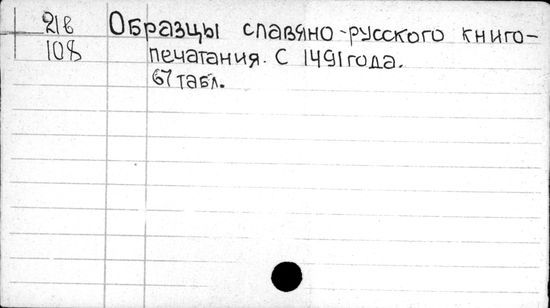 21в Образцы славяно-русского книго-
108 печатания. С 1491 года.
67 табл.